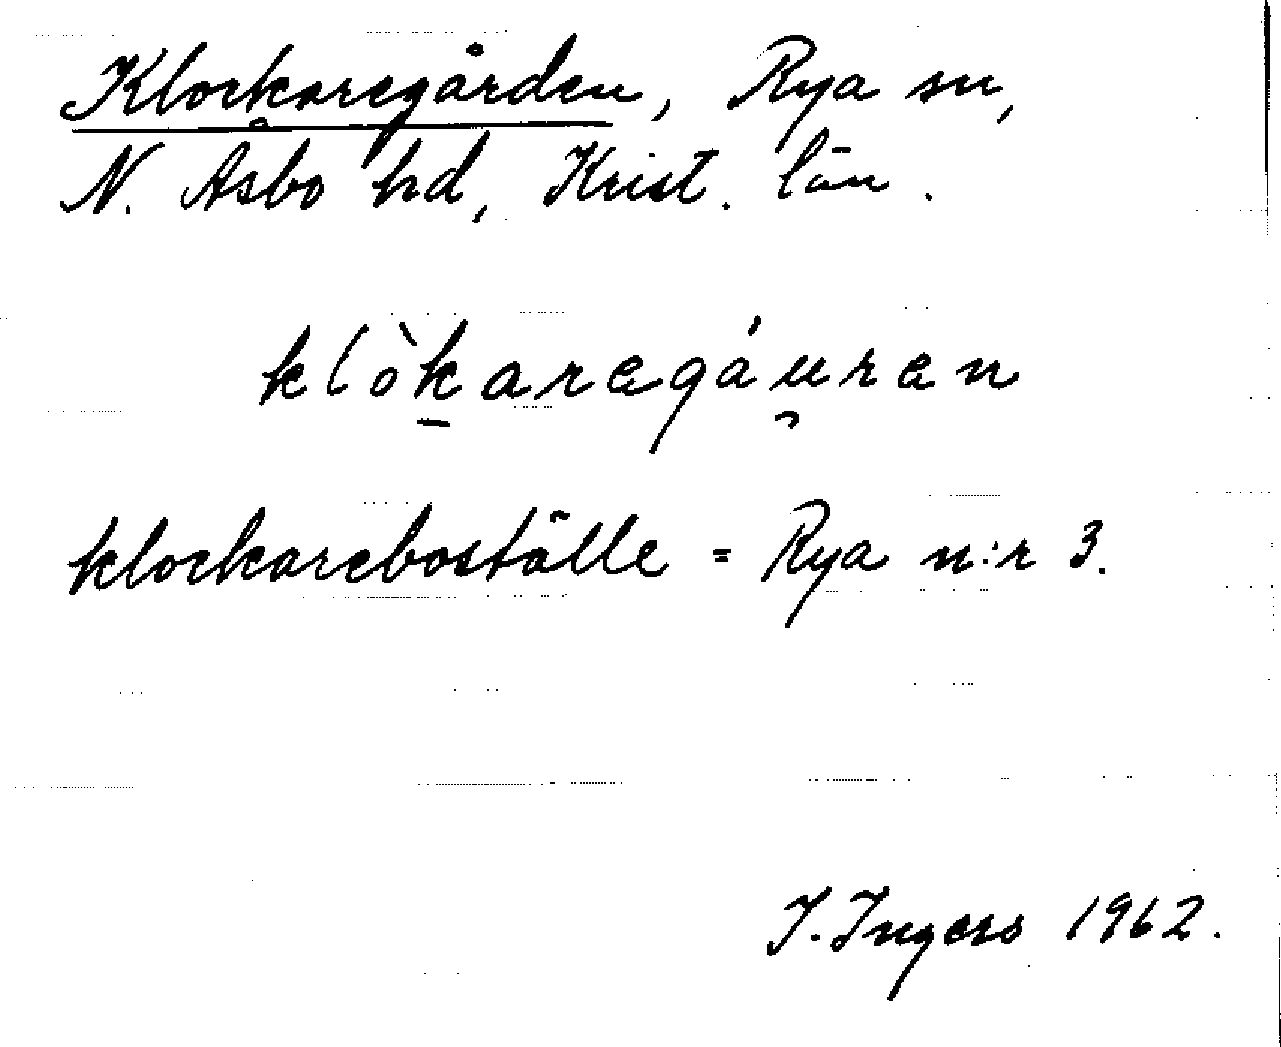 Klockaregården, Rya sn,
N. Åsbo hd, Krist. län.
klòk̠aregáu̯ren
klockareboställe = Rya n:r 3.
I. Ingers 1962.